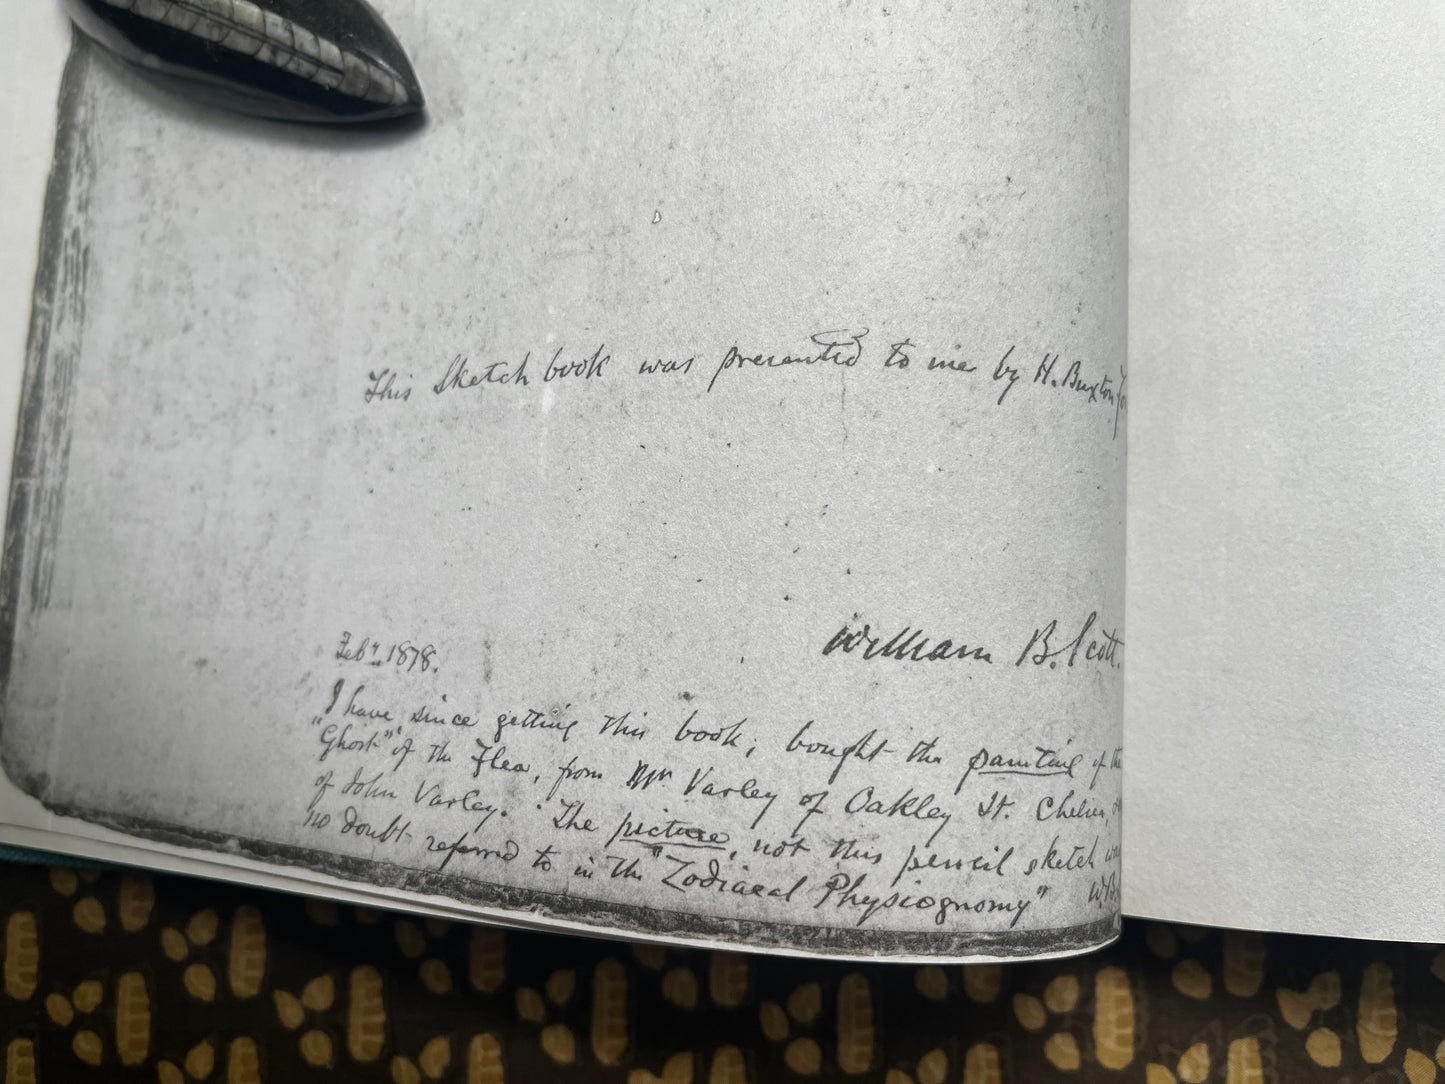 This Sketch book was presented to me by H. Buxton
William B. Scott.
Feby. 1878.
I have, since getting this book, bought the painting of the
"Ghost" of the Flea, from Mr Varley of Oakley St. Chelsea,
of John Varley. The picture, not this pencil sketch
no doubt referred to in the "Zodiacal Physiognomy" W.B.